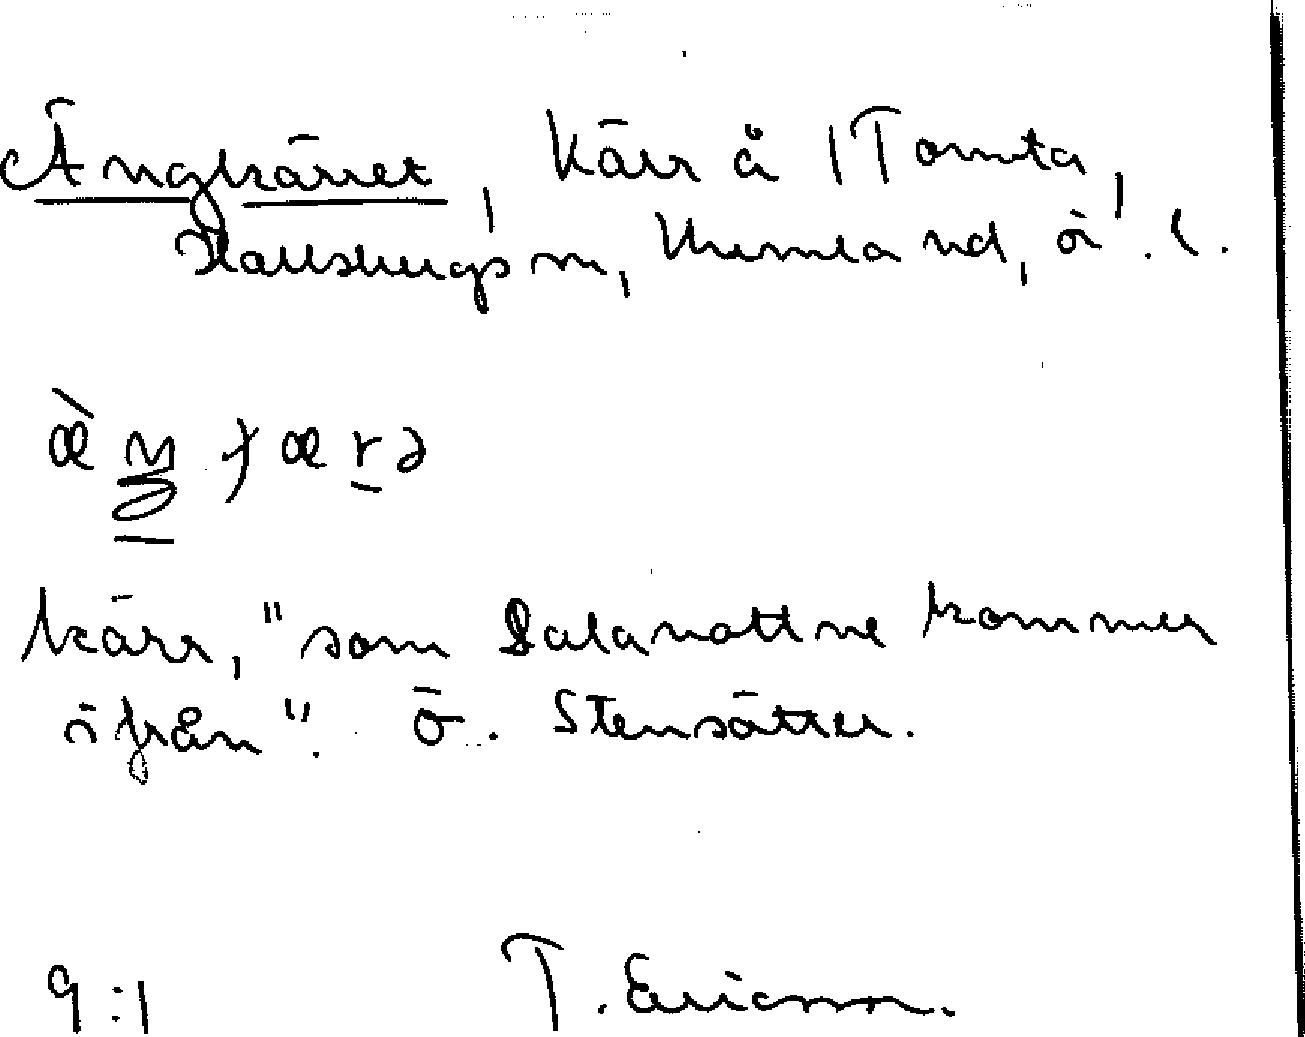 Ängkärret, kärr å 1 Tomta,
Hallsbergs sn, Kumla hd, ö. l.
æ̀ŋɟærə
kärr, "som Dalanottne kommer
ifrån". ö. Stensätter.
9:1 T. Ericson.